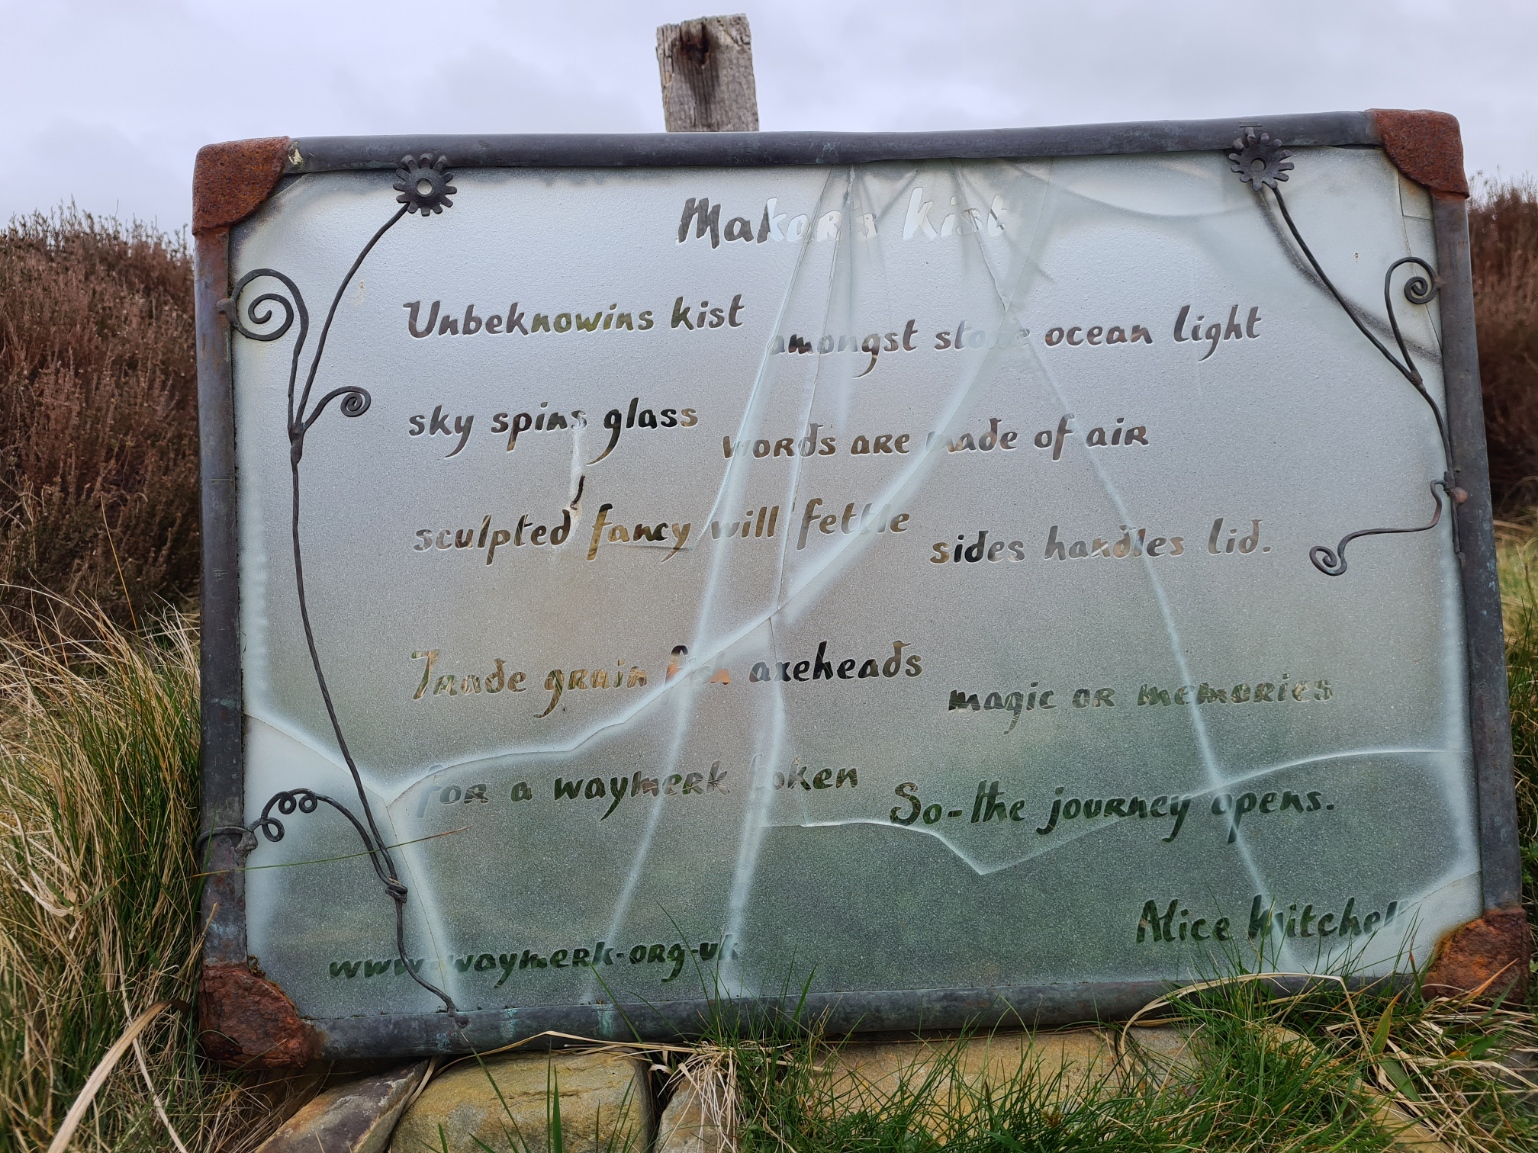 Maker's Kist
Unbeknowins kist
amongst stone ocean light
sky spins glass
words are made of air
sculpted fancy will fettle
sides handles lid.
Trade grain for axeheads
magic or memories
for a waymerk token
So-the journey opens.
Alice Mitchell
www.waymerk.org.uk